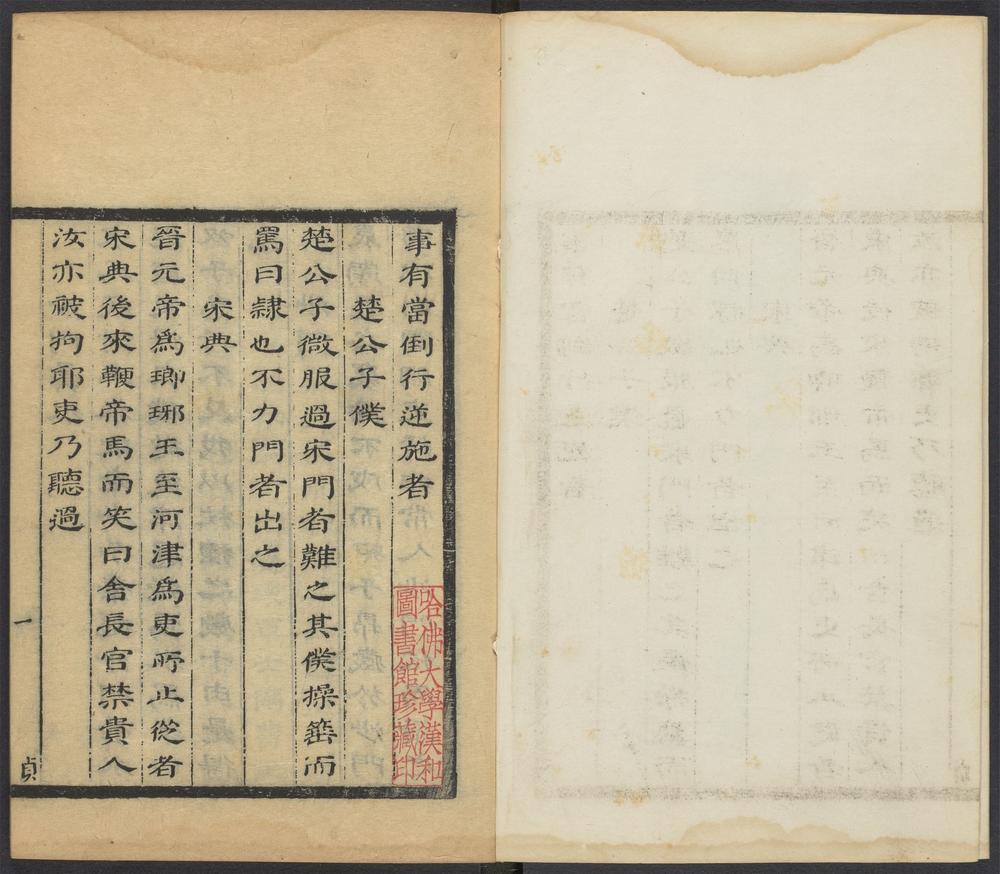 事有當倒行逆施者
楚公子僕
楚公子微服過宋門者難之其僕操箠而
罵曰隷也不力門者出之
宋典
晉元帝爲瑯琊王至河津爲吏所止從者
宋典後來鞭帝馬而笑曰舍長官禁貴人
汝亦被拘耶吏乃聽過
一
貞
哈佛大學漢和
圖書館珍藏印